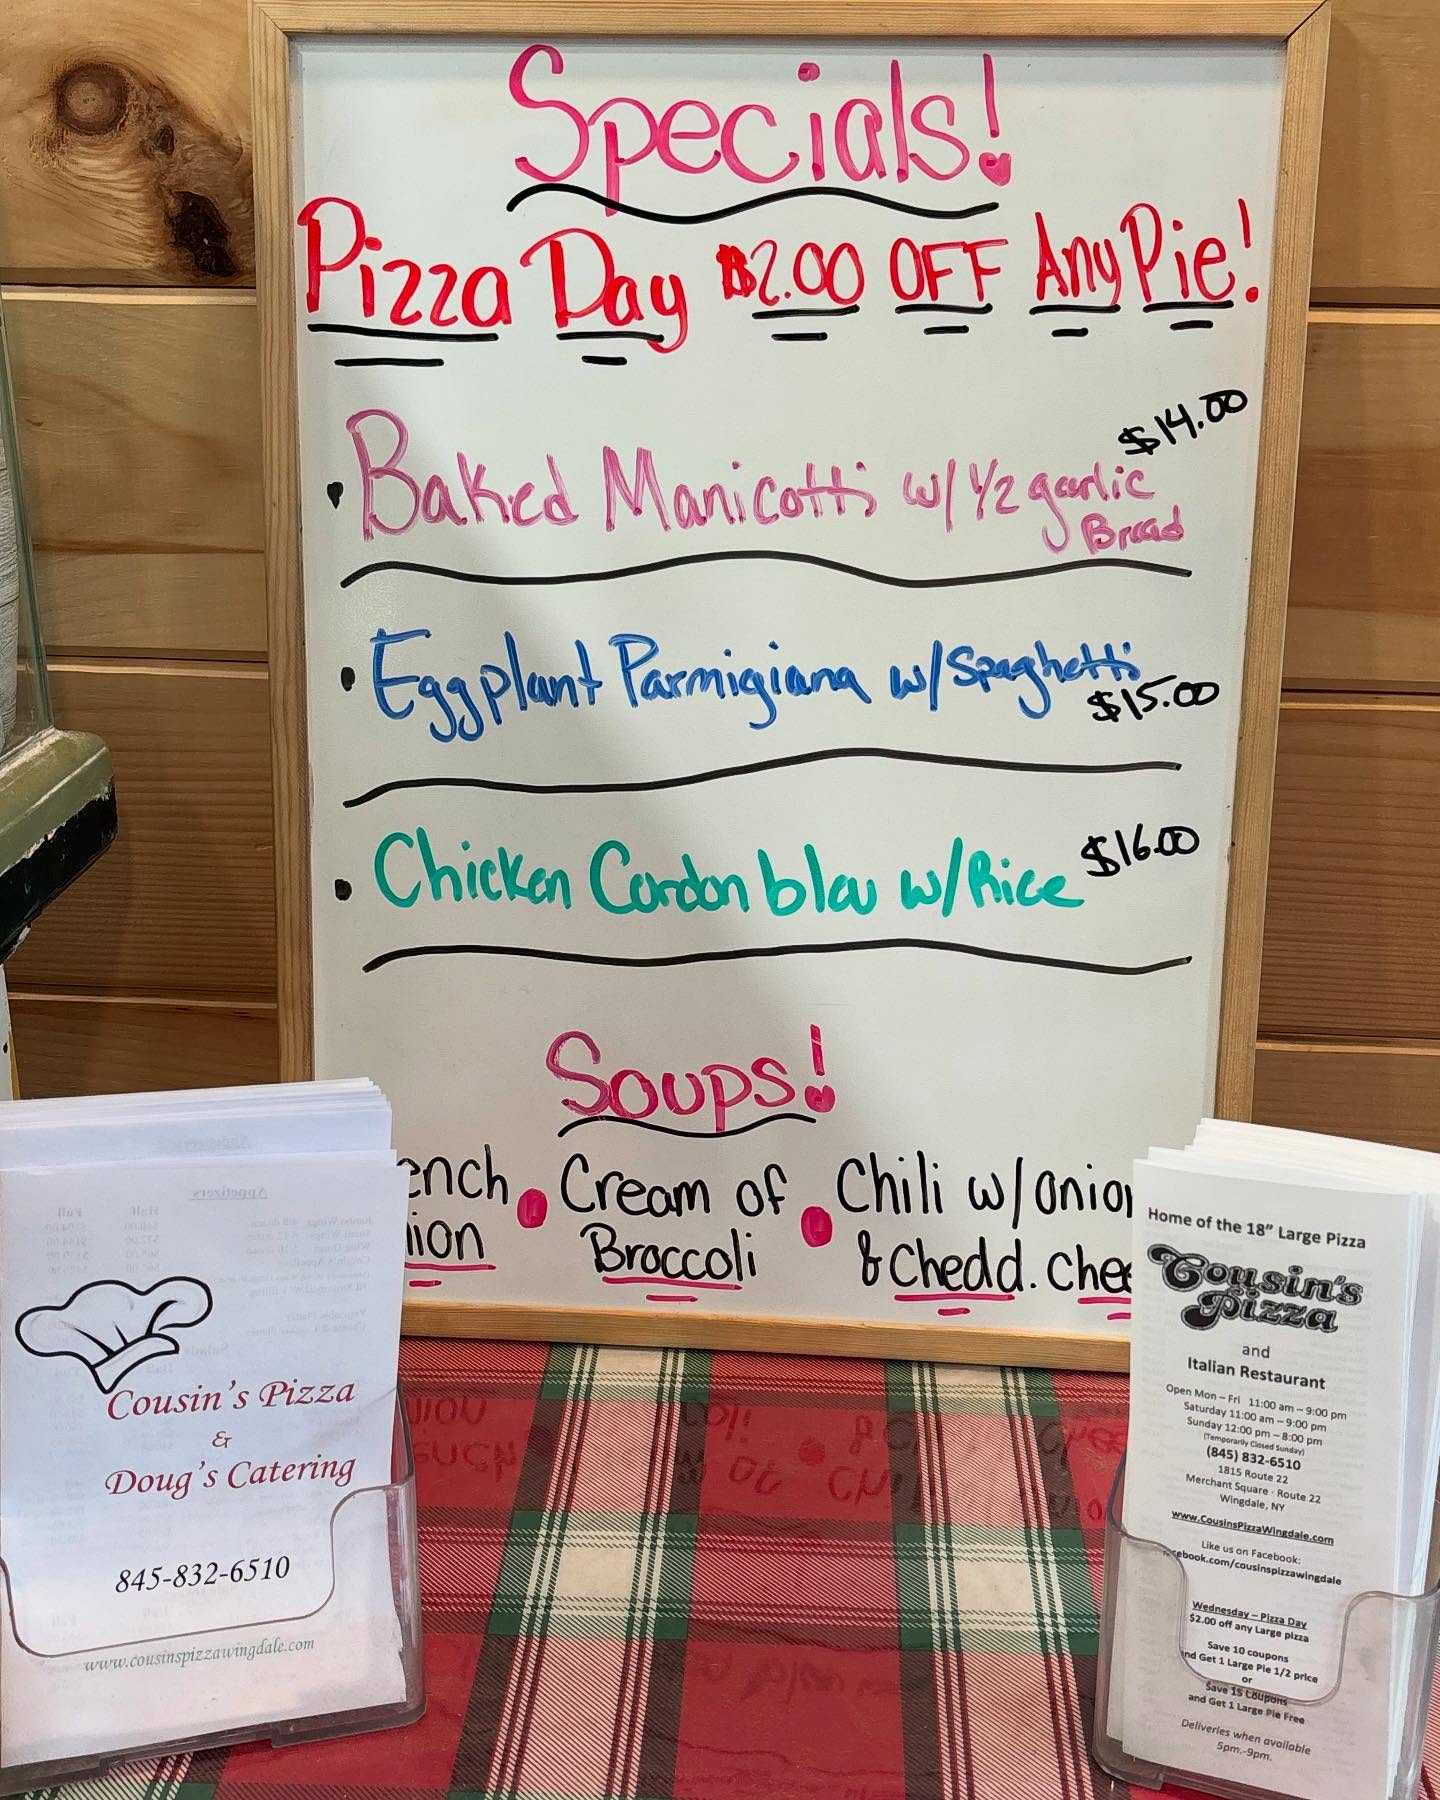 Specials!
Pizza Day $2.00 OFF Any Pie!
$14.00
• Baked Manicotti w/ 1/2 garlic
Bread
• Eggplant Parmigiana w/Spaghetti
$15.00
• Chicken Cordon bleu w/Rice $16.00
Soups!
ench • Cream of • Chili w/onion
ion Broccoli & Chedd. Chee
Cousin's Pizza
&
Doug's Catering
845-832-6510
www.cousinspizzawingdale.com
Home of the 18" Large Pizza
Cousin's
Pizza
and
Italian Restaurant
Open Mon – Fri 11:00 am – 9:00 pm
Saturday 11:00 am – 9:00 pm
Sunday 12:00 pm – 8:00 pm
(Temporarily Closed Sunday)
(845) 832-6510
1815 Route 22
Merchant Square · Route 22
Wingdale, NY
www.CousinsPizzaWingdale.com
Like us on Facebook:
cebook.com/cousinspizzawingdale
Wednesday – Pizza Day
$2.00 off any Large pizza
Save 10 coupons
nd Get 1 Large Pie 1/2 price
or
Save 15 Coupons
and Get 1 Large Pie Free
Deliveries when available
5pm.-9pm.